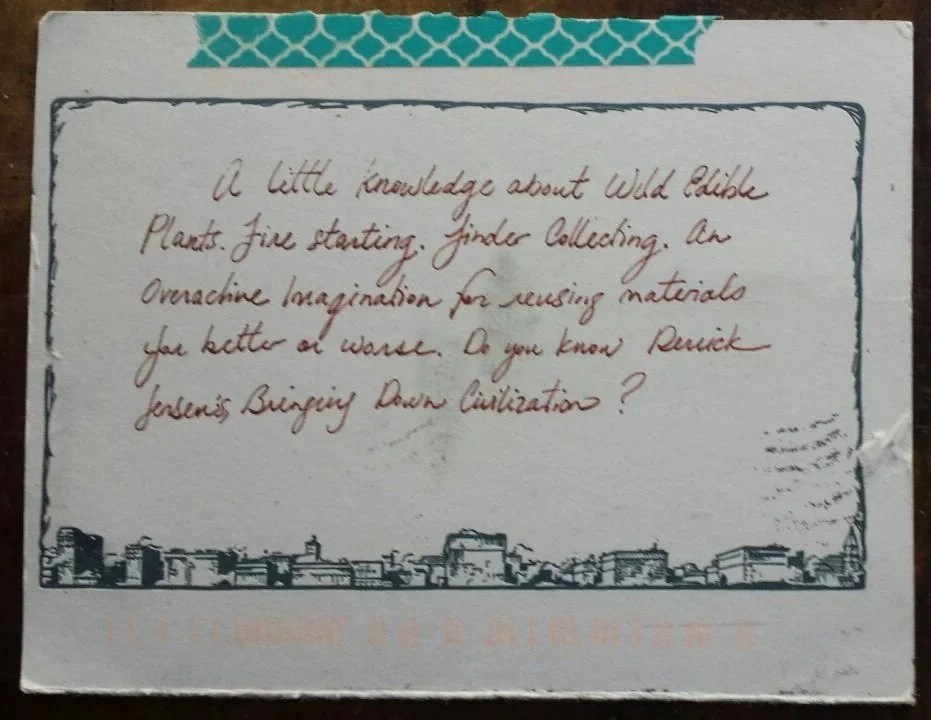 A little knowledge about Wild Edible
Plants. Fire starting. Tinder Collecting. An
Overactive Imagination for reusing materials
for better or worse. Do you know Derrick
Jensen's, Bringing Down Civilization?